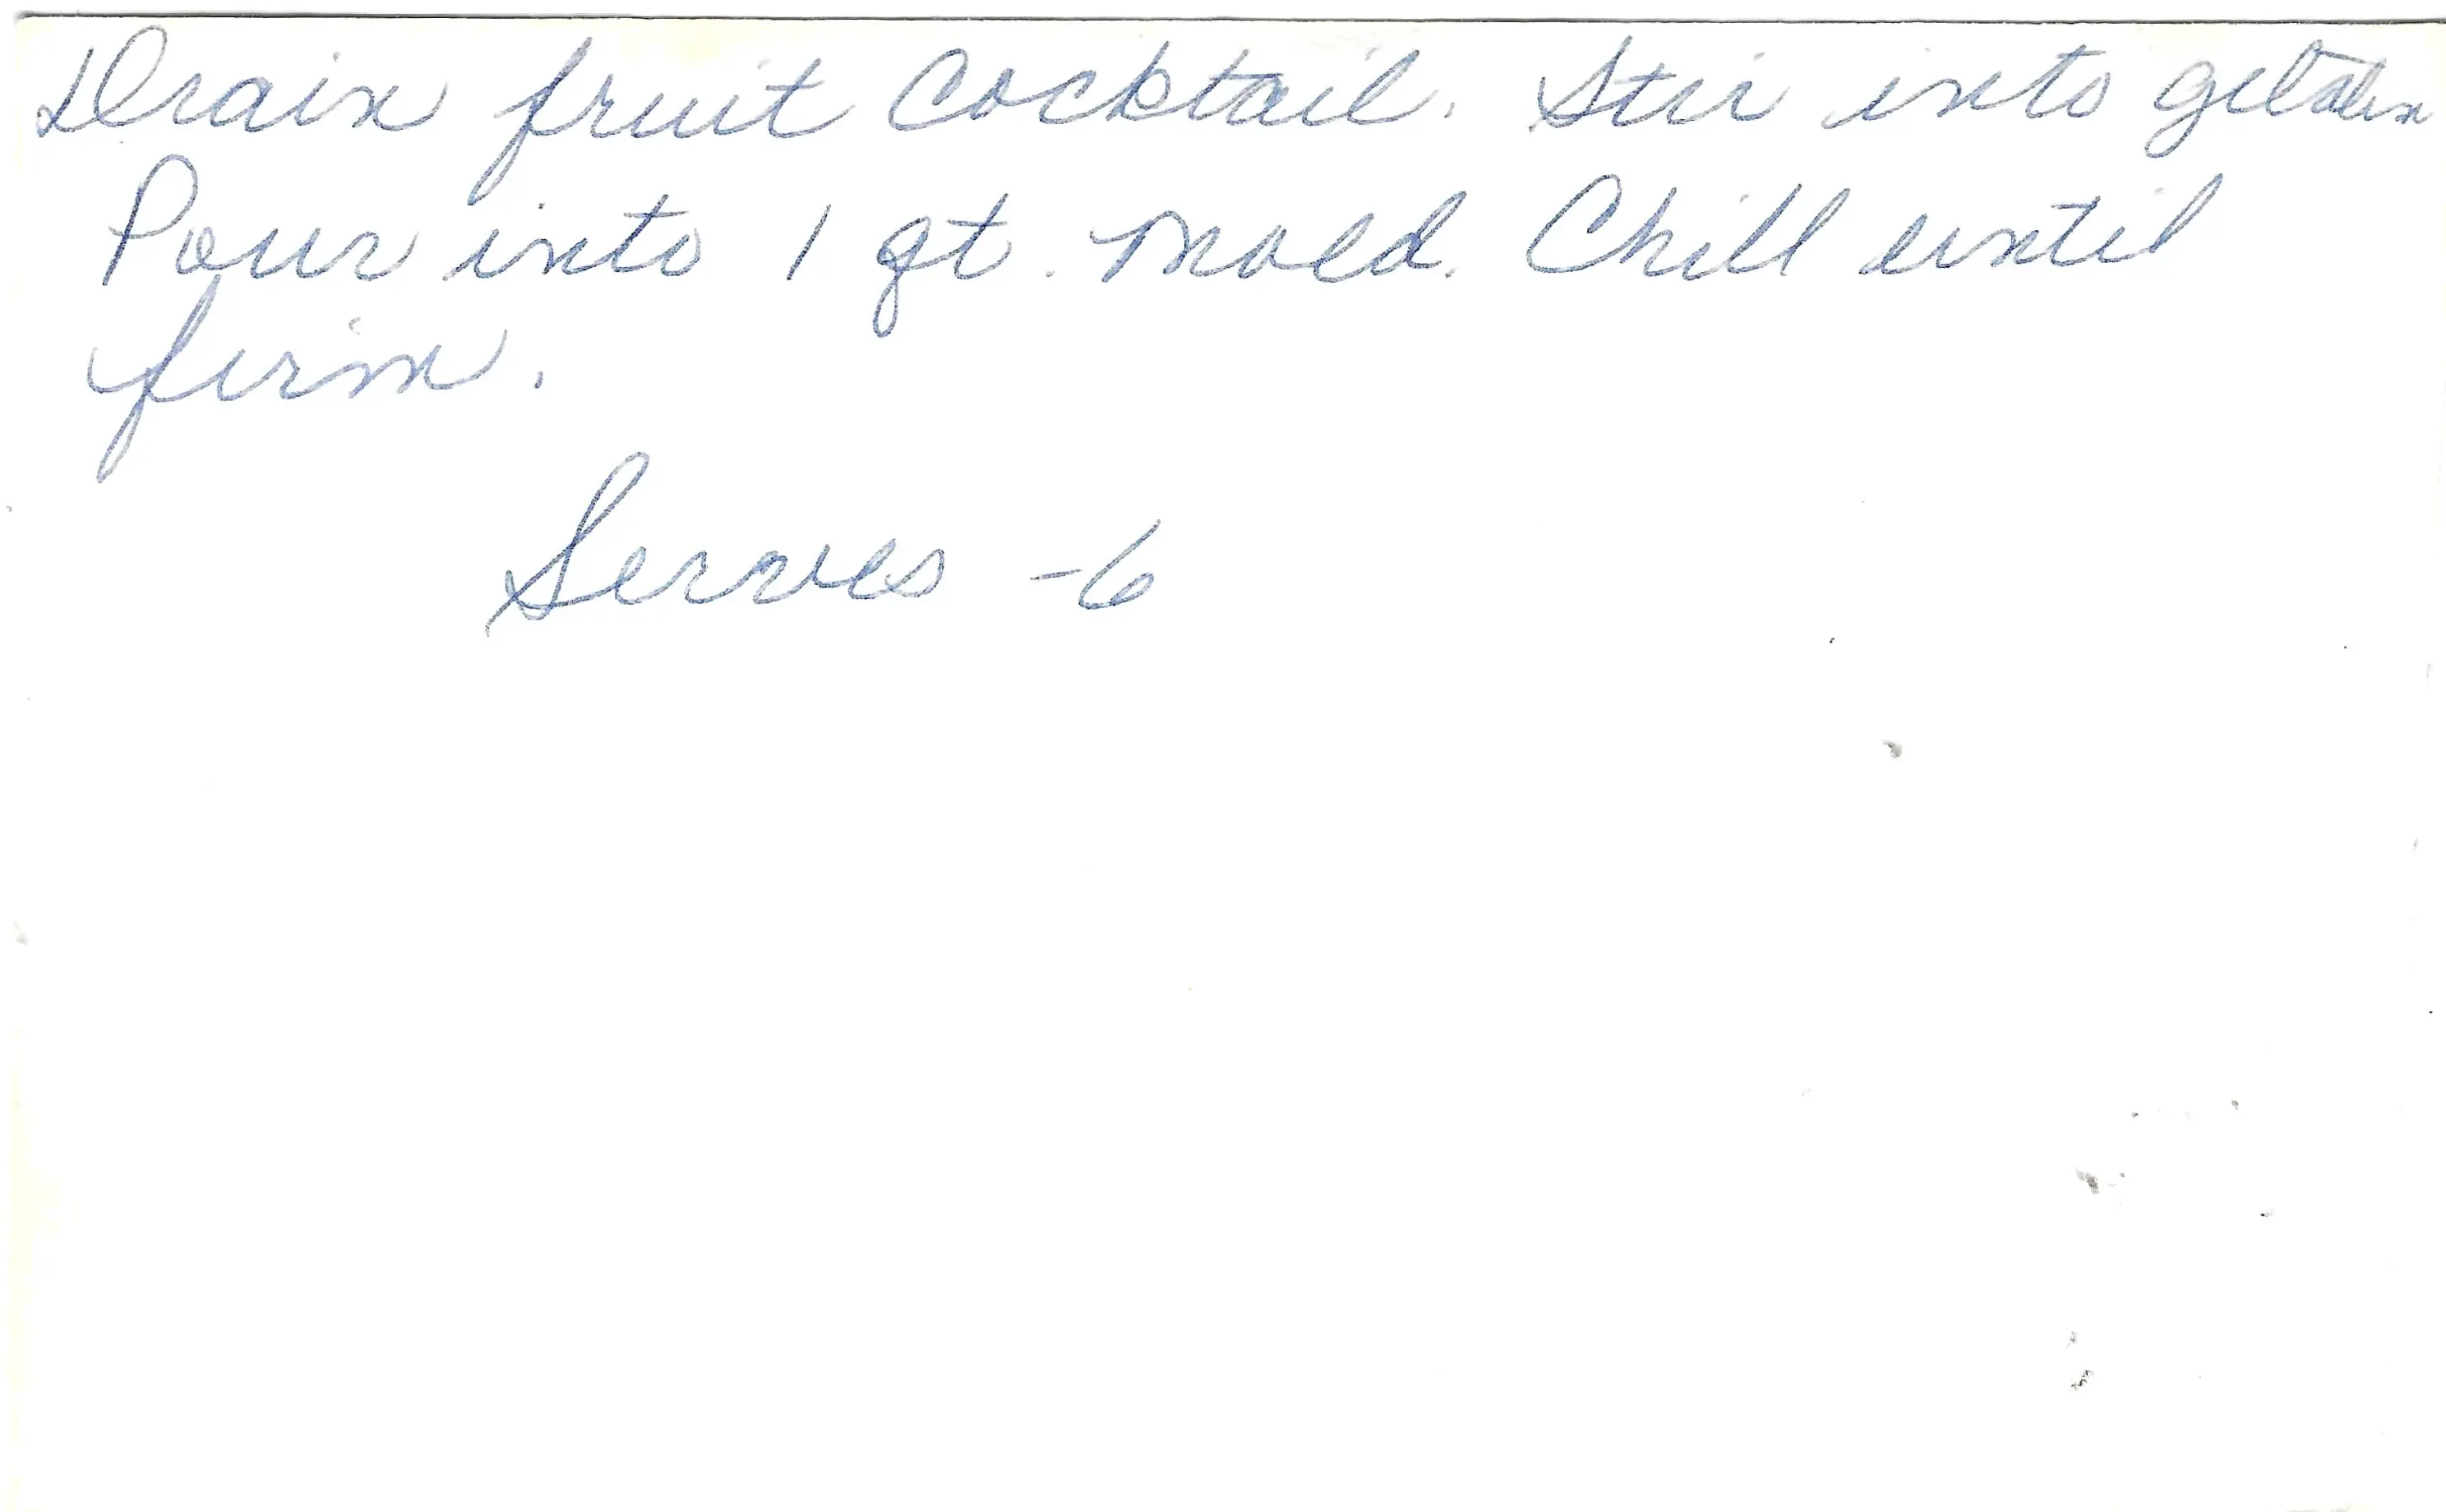 Drain fruit Cocktail. Stir into gelatin
Pour into 1 qt. mold. Chill until
firm.
Serves -6